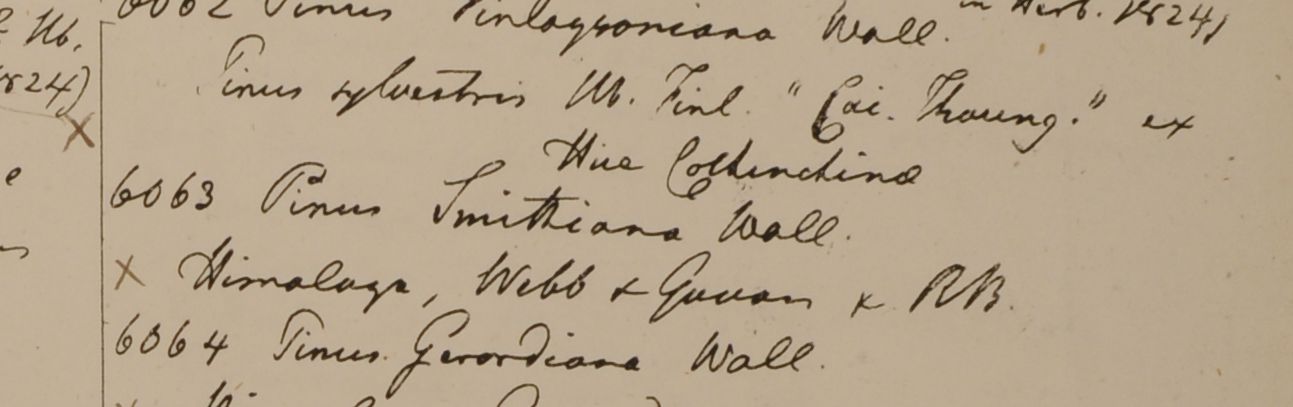 6062 Pinus Finlaysoniana Wall. in Herb. 1824,
Hb.
1824)
Pinus sylvestris Hb. Finl. "Cai. Thoung." ex
X
Hue Cochinchina
6063 Pinus Smithiana Wall.
X Himalaya, Webb & Govan & RB.
6064 Pinus Gerardiana Wall.